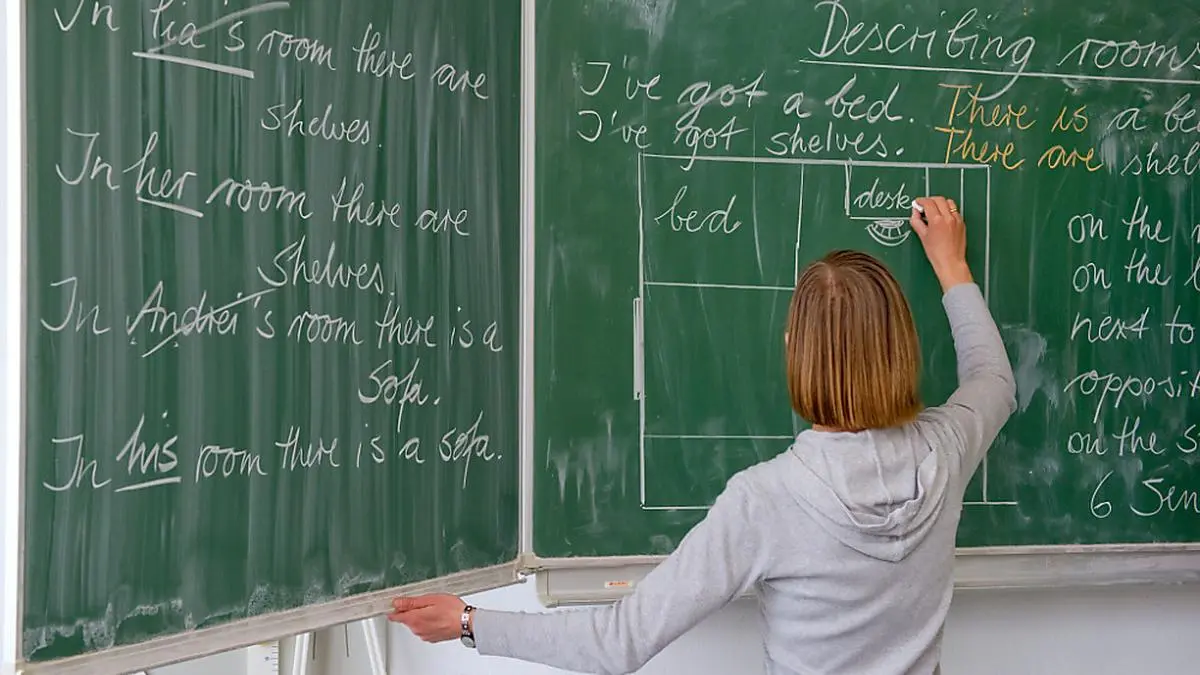 In Pia's room there are
shelves.
In her room there are
Shelves.
In Andrei's room there is a
Sofa.
In his room there is a sofa.
Describing rooms
I've got a bed. There is a be
I've got shelves. There are shel
bed
desk
on the
on the
next to
opposit
on the s
6 Sen